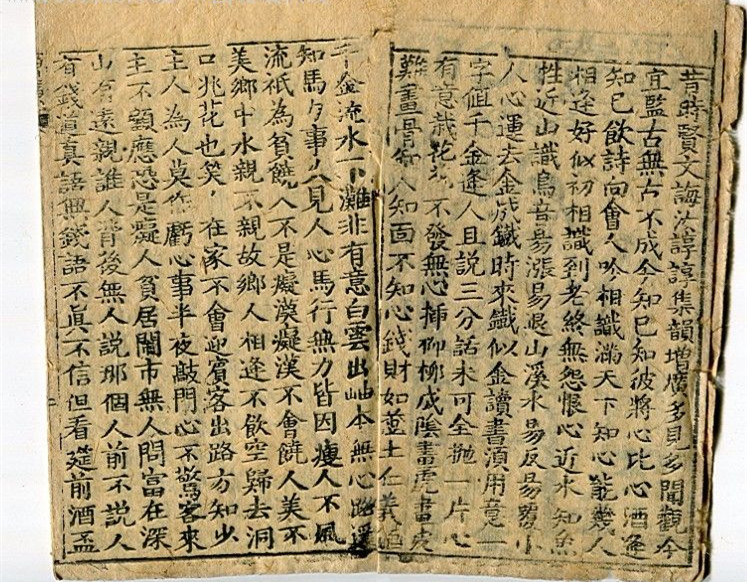 昔時賢文誨汝諄諄集韻增廣多見多聞觀今
宜監古無古不成今知已知彼將心比心酒逢
知已飲詩向會人吟相識滿天下知心能幾人
相逢好似初相識到老終無怨恨心近水知魚
性近山識鳥音易漲易退山溪水易反易覆小
人心運去金成鐵時來鐵似金讀書須用意一
字值千金逢人且説三分話未可全拋一片心
有意栽花不發無心揷柳柳成陰畫虎畫皮
難畫骨知人知面不知心錢財如糞土仁義
千金流水下灘非有意白雲出岫本無心路遥
知馬力事久見人心馬行無力皆因瘦人不風
流祇為貧饒人不是癡漢癡漢不會饒人美不
美鄉中水親不親故鄉人相逢不飲空歸去洞
口兆花也笑在家不會迎賓客出路方知少
主人為人莫作虧心事半夜敲門心不驚客來
主不顧應恐是癡人貧居鬧市無人問富在深
山有遠親誰人背後無人説那個人前不説人
有錢道真語無錢語不眞不信但看筵前酒盃